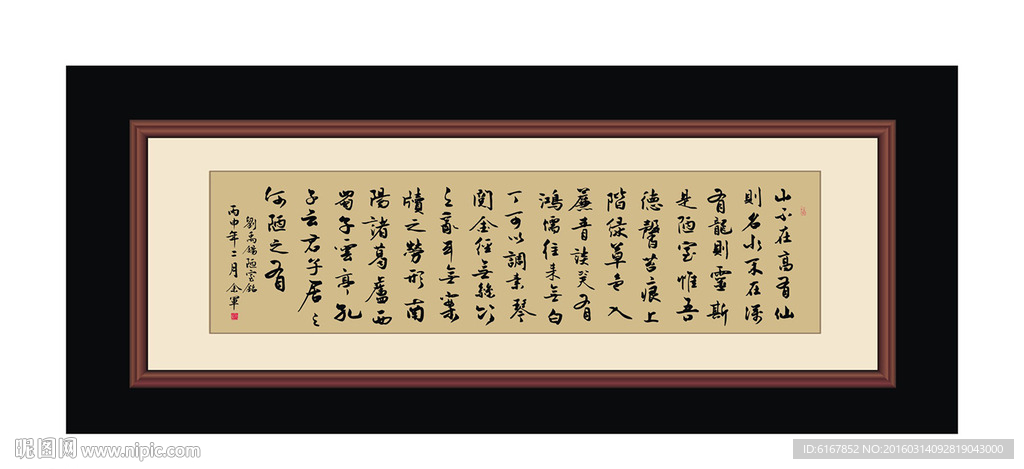 山不在高有仙
則名水不在深
有龍則靈斯
是陋室惟吾
德馨苔痕上
階綠草色入
簾青談笑有
鴻儒往來無白
丁可以調素琴
閱金徑無絲竹
之亂耳無案
牘之勞形南
陽諸葛廬西
蜀子雲亭孔
子云君子居之
何陋之有
劉禹錫陋室銘
丙申年二月
昵图网 www.nipic.com
ID:6167852 NO:20160314092819043000